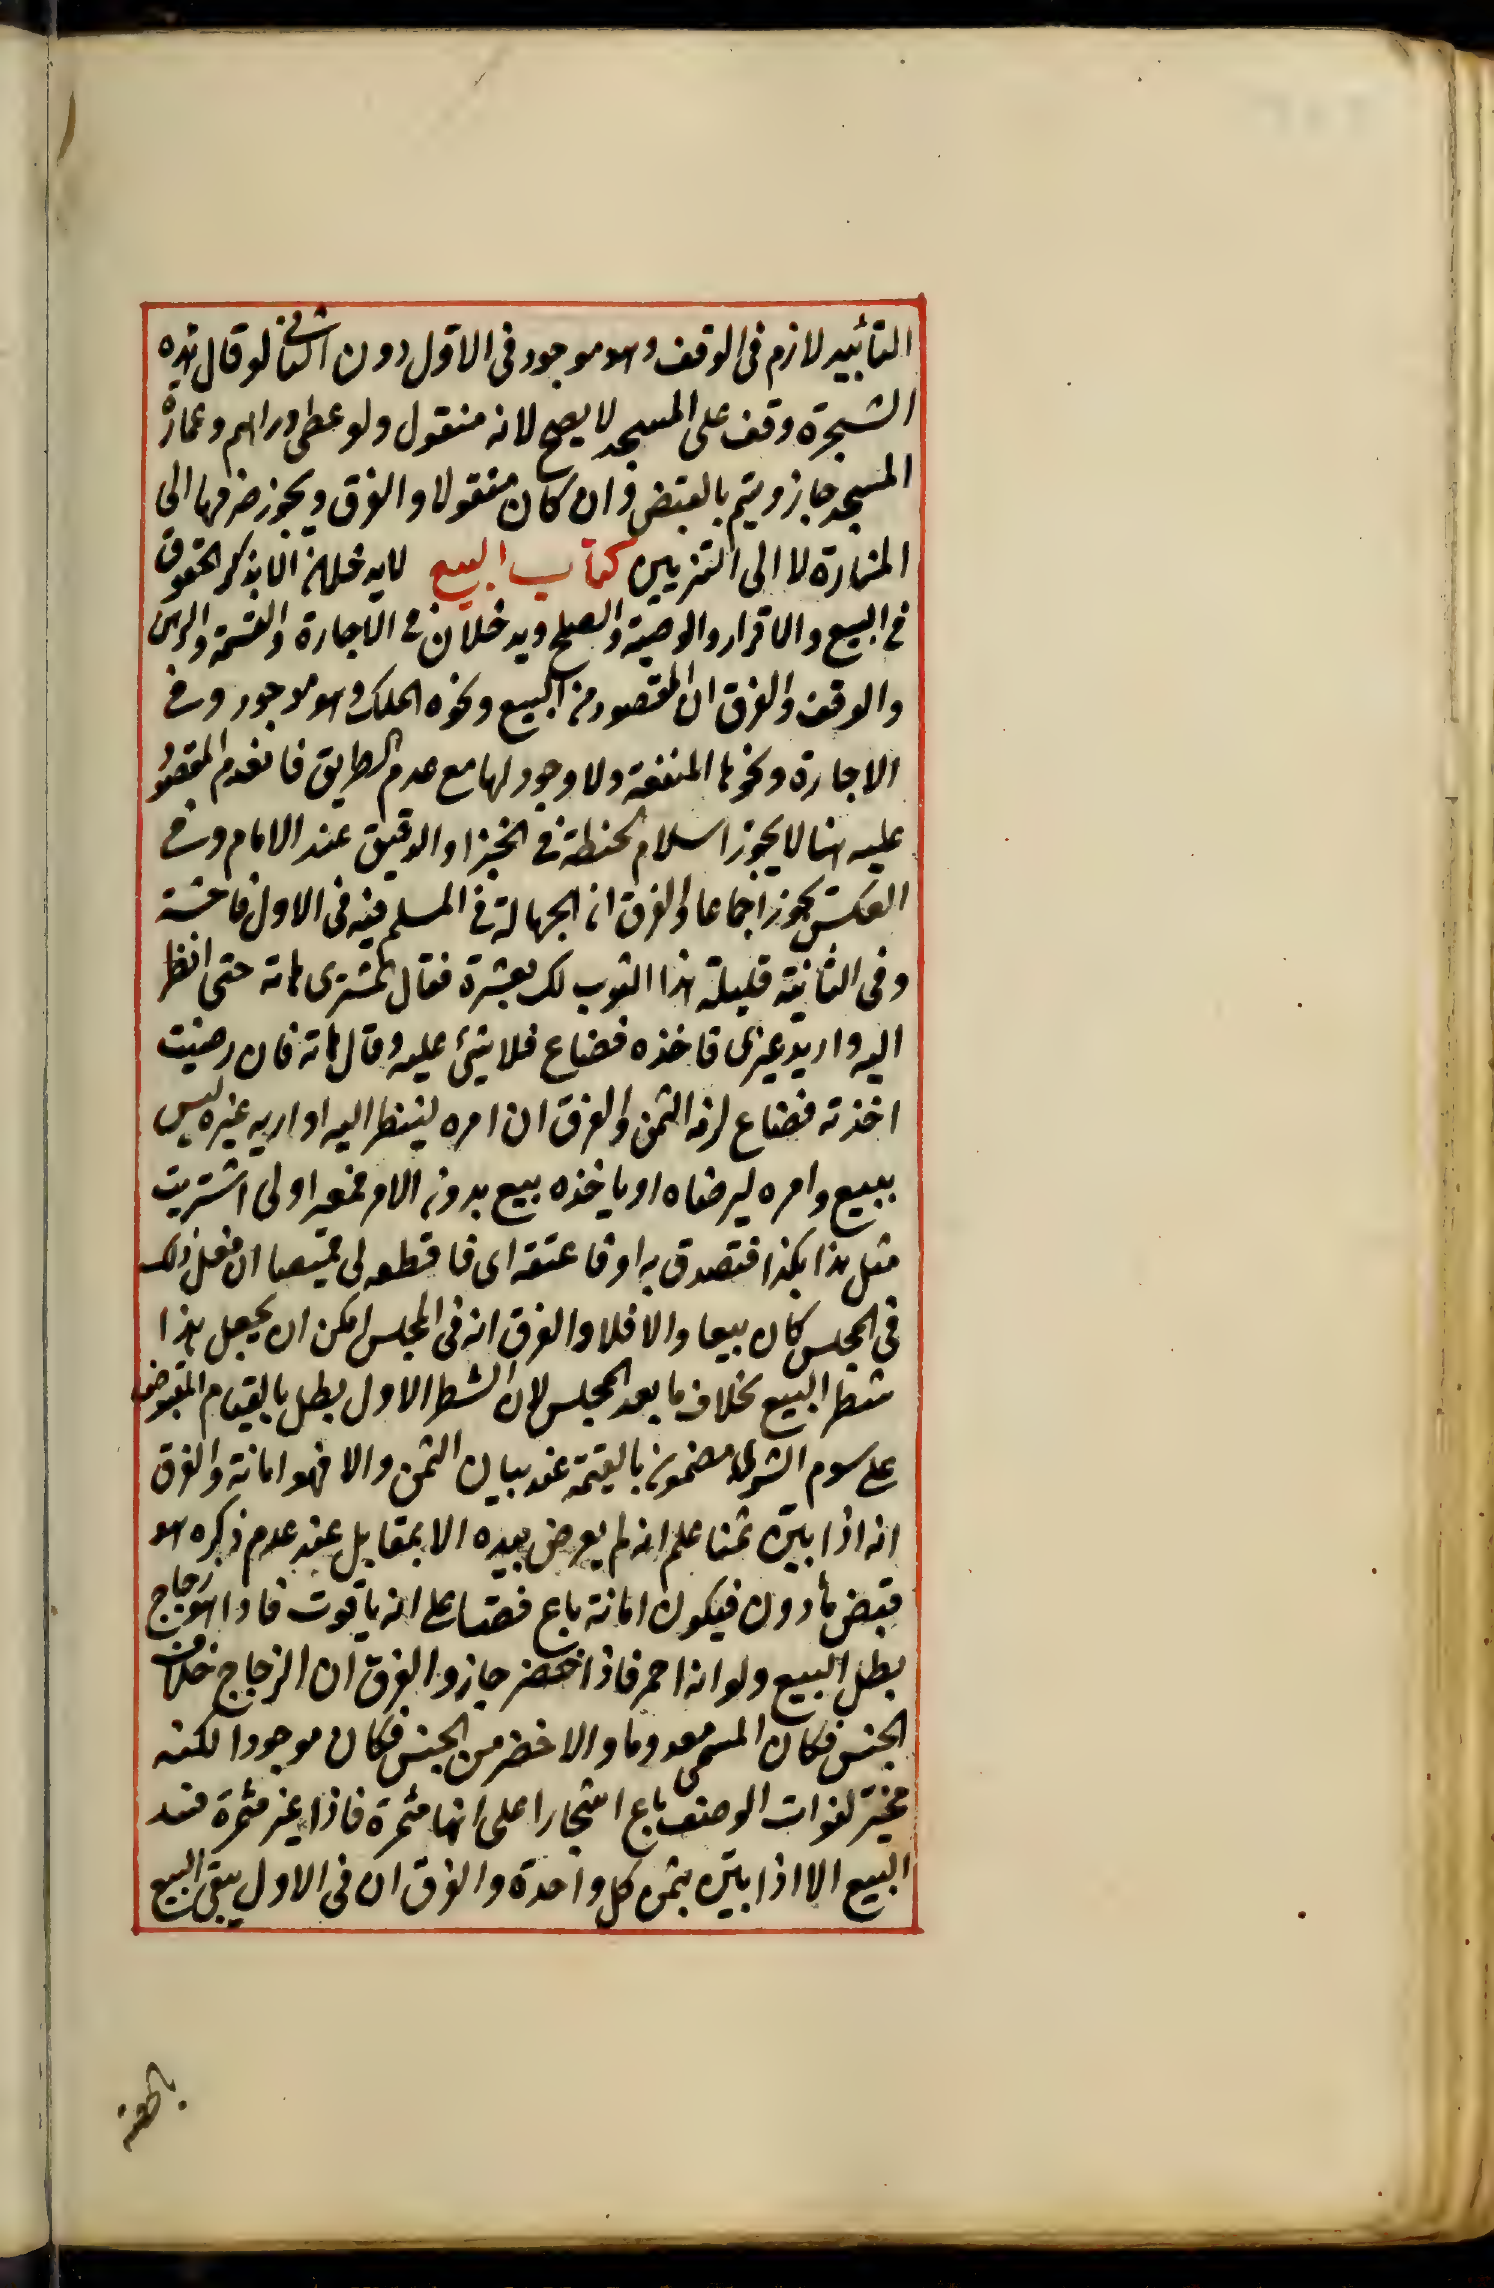 التأبيد لازم فى الوقف وهو موجود فى الاول دون الثانى لو قال هذه
الشجرة وقف على المسجد لا يصح لانه منقول ولو عطى دراهم وعمارة
المسجد جاز ويتم بالقبض وان كان منقولا والفرق ويجوز صرفها الى
المنارة لا الى التزيين كتاب البيع لا يدخلان الا بذكر الحقوق
فى البيع والاقرار والوصية والصلح ويدخلان فى الاجارة والقسمة والرهن
والوقف والفرق ان المقصود من البيع ونحوه الملك وهو موجود وفى
الاجارة ونحوها المنفعة ولا وجود لها مع عدم الطريق فانعدم المقصود
عليه هنا لا يجوز اسلام الحنطة فى الخبز او الدقيق عند الامام وفى
العكس يجوز اجماعا والفرق ان الجهالة فى المسلم فيه فى الاول فاحشة
وفى الثانية قليلة هذا الثوب لك بعشرة فقال المشترى هاته حتى انظر
اليه واريه غيرى فاخذه فضاع فلا شئ عليه وقال هاته فان رضيت
اخذته فضاع لزمه الثمن والفرق ان امره لينظر اليه او اريه غيره ليس
ببيع وامره ليرضاه او ياخذه بيع بدون الامر فمعه اولى اشتريت
مثل هذا بكذا فتصدق به او فاعتقه اى فاقطعه لى قميصا ان فعل ذلك
فى المجلس كان بيعا والا فلا والفرق انه فى المجلس امكن ان يجعل هذا
شطر البيع بخلاف ما بعد المجلس لان الشطر الاول بطل بالقيام المقبوض
على سوم الشراء مضمون بالقيمة عند بيان الثمن والا فهو امانة والفرق
انه اذا بين ثمنا علم انه لم يعرض بيده الا بمقابل عند عدم ذكره هو
قبض مأذون فيكون امانة باع فصا على انه ياقوت فاذا هو زجاج
بطل البيع ولو انه احمر فاذا اخضر جاز والفرق ان الزجاج خلاف
الجنس فكان المسمى معدوما والاخضر من الجنس فكان موجودا لكنه
مخير لفوات الوصف باع اشجارا على انها مثمرة فاذا غير مثمرة فسد
البيع الا اذا بين بثمن كل واحدة والفرق ان فى الاول يبقى البيع